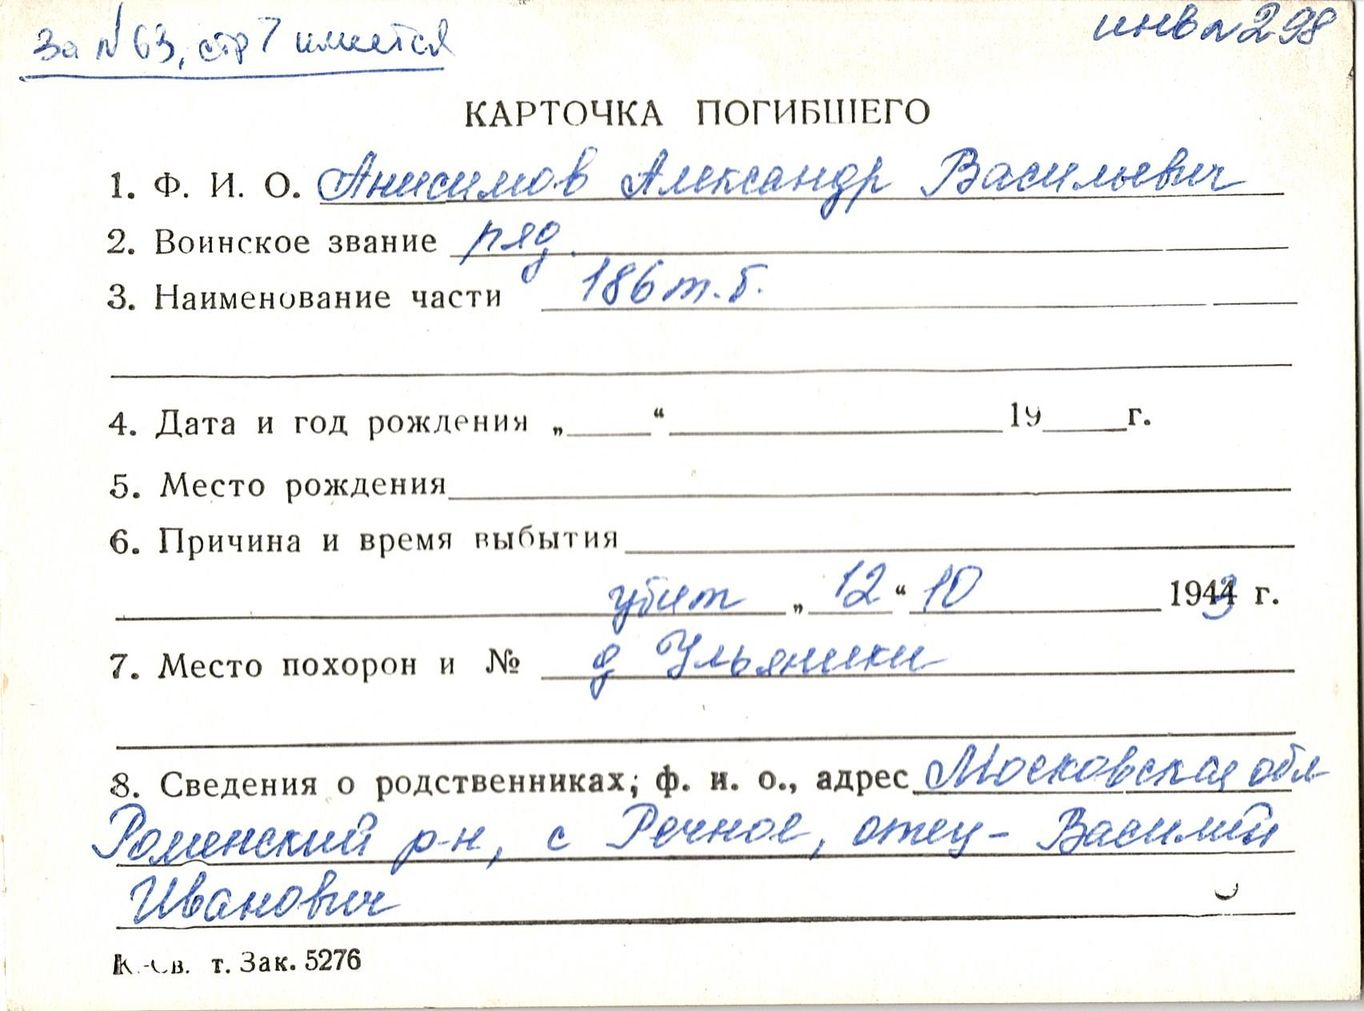 За №63, стр 7 имеется
инв №298
КАРТОЧКА ПОГИБШЕГО
1. Ф. И. О. Анисимов Александр Васильевич
2. Воинское звание ряд.
3. Наименование части 186 т.б.
4. Дата и год рождения „ “ 19 г.
5. Место рождения
6. Причина и время выбытия
убит „ 12 “ 10 1943 г.
7. Место похорон и № д Ульяники
8. Сведения о родственниках; ф. и. о., адрес Московская обл
Роменский р-н, с Речное, отец - Василий
Иванович
т. Зак. 5276